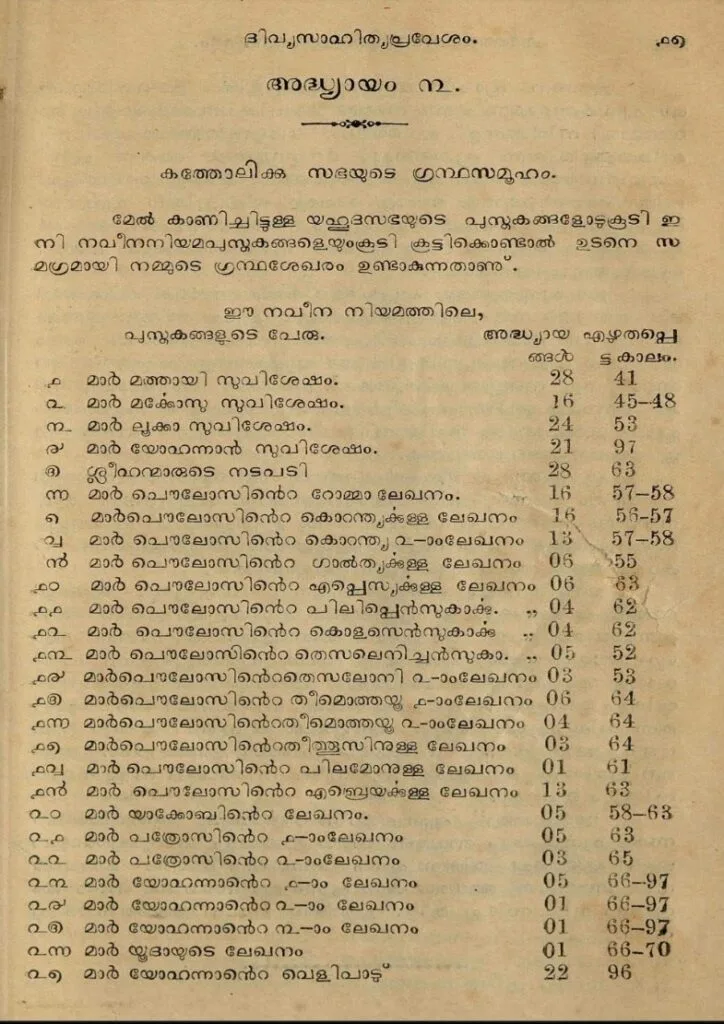 ദിവ്യസാഹിത്യപ്രവേശം. ൧൭
അദ്ധ്യായം ൩.
കത്തോലിക്കു സഭയുടെ ഗ്രന്ഥസമൂഹം.
മേൽ കാണിച്ചിട്ടുള്ള യഹൂദസഭയുടെ പുസ്തകങ്ങളോടുകൂടി ഇ
നി നവീനനിയമപുസ്തകങ്ങളെയുംകൂടി കൂട്ടിക്കൊണ്ടാൽ ഉടനെ സ
മഗ്രമായി നമ്മുടെ ഗ്രന്ഥശേഖരം ഉണ്ടാകുന്നതാണ്.
ഈ നവീന നിയമത്തിലെ,
പുസ്തകങ്ങളുടെ പേരു. അദ്ധ്യായ എഴുതപ്പെ
ങ്ങൾ ട്ട കാലം.
൧ മാർ മത്തായി സുവിശേഷം. 28 41
൨ മാർ മൎക്കോസു സുവിശേഷം. 16 45–48
൩ മാർ ലൂക്കാ സുവിശേഷം. 24 53
൪ മാർ യോഹന്നാൻ സുവിശേഷം. 21 97
൫ ശ്ലീഹന്മാരുടെ നടപടി 28 63
൬ മാർ പൌലോസിൻെറ റോമ്മാ ലേഖനം. 16 57–58
൭ മാർപൌലോസിൻെറ കൊറന്ത്യൎക്കുള്ള ലേഖനം 16 56-57
൮ മാർ പൌലോസിൻെറ കൊറന്ത്യ ൨–ാംലേഖനം 13 57–58
൯ മാർ പൌലോസിൻെറ ഗാൽത്യൎക്കുള്ള ലേഖനം 06 55
൧൦ മാർ പൌലോസിൻെറ എപ്പെസ്യൎക്കുള്ള ലേഖനം 06 63
൧൧ മാർ പൌലോസിൻെറ പിലിപ്പെൻസുകാൎക്കു. ,, 04 62
൧൨ മാർ പൌലോസിൻെറ കൊളസെൻസുകാൎക്കു ,, 04 62
൧൩ മാർ പൌലോസിൻെറ തെസലെനിച്ചൻസുകാ. ,, 05 52
൧൪ മാർപൌലോസിൻെറതെസലോനി ൨–ാംലേഖനം 03 53
൧൫ മാർപൌലോസിൻെറ തീമൊത്തയൂ ൧–ാംലേഖനം 06 64
൧൬ മാർപൌലോസിൻെറതീമൊത്തയൂ ൨–ാംലേഖനം 04 64
൧൭ മാർപൌലോസിൻെറതീത്തൂസിനുള്ള ലേഖനം 03 64
൧൮ മാർ പൌലോസിൻെറ പിലമോനുള്ള ലേഖനം 01 61
൧൯ മാർ പൌലോസിൻെറ എബ്രെയൎക്കുള്ള ലേഖനം 13 63
൨൦ മാർ യാക്കോബിൻെറ ലേഖനം. 05 58–63
൨൧ മാർ പത്രോസിൻെറ ൧–ാംലേഖനം 05 63
൨൨ മാർ പത്രോസിൻെറ ൨–ാംലേഖനം 03 65
൨൩ മാർ യോഹന്നാൻെറ ൧–ാം ലേഖനം 05 66–97
൨൪ മാർ യോഹന്നാൻെറ ൨–ാം ലേഖനം 01 66–97
൨൫ മാർ യോഹന്നാൻെറ ൩–ാം ലേഖനം 01 66–97
൨൬ മാർ യൂദായുടെ ലേഖനം 01 66–70
൨൭ മാർ യോഹന്നാൻെറ വെളിപാടു് 22 96